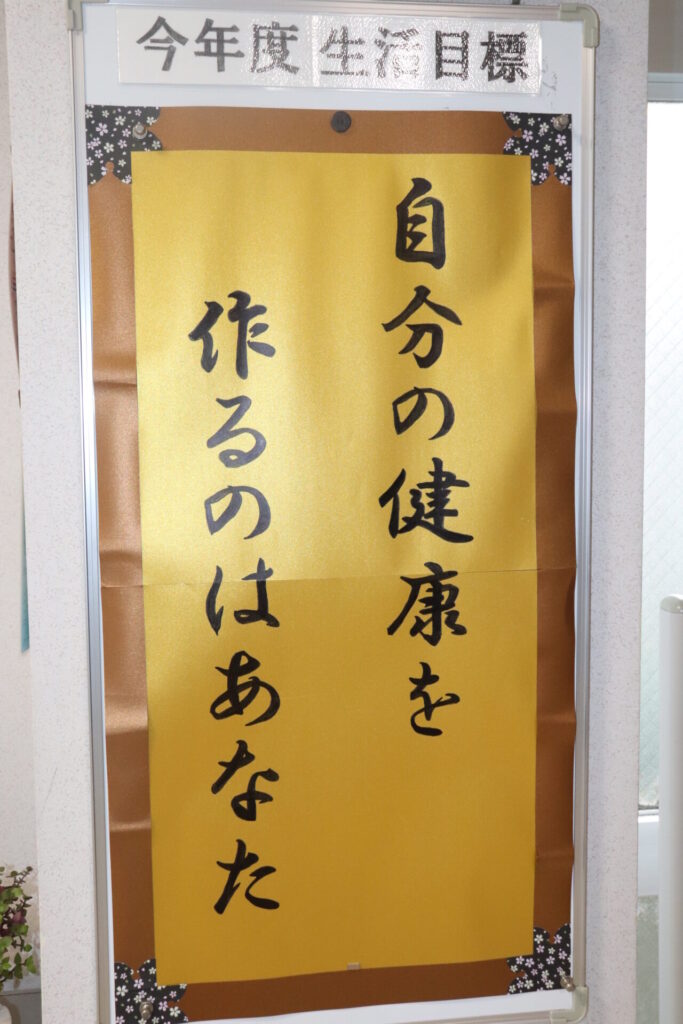 今年度 生活目標
自分の健康を
作るのはあなた